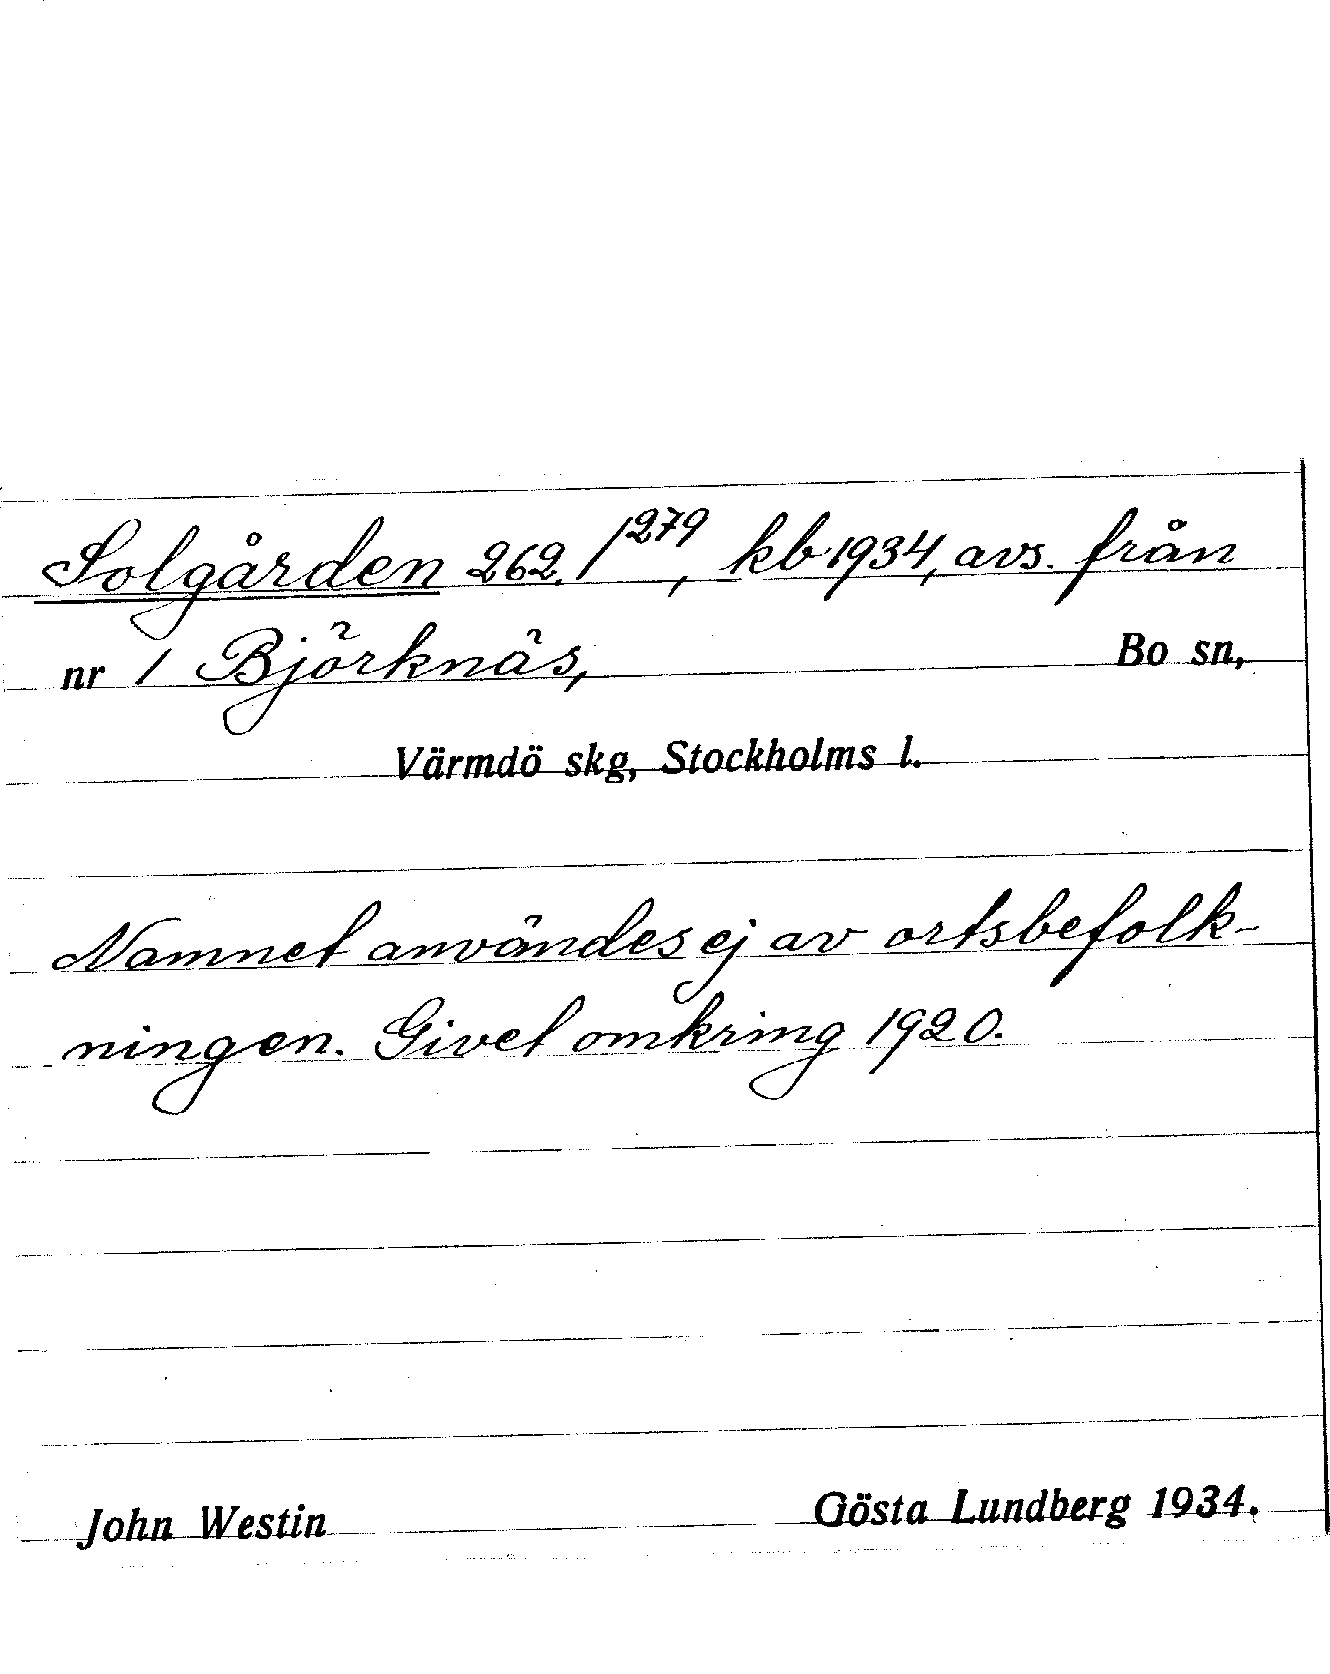 Solgården 262. 1²⁷⁹, kb 1934, avs. från
nr 1 Björknäs, Bo sn,
Värmdö skg, Stockholms l.
Namnet användes ej av ortsbefolk-
ningen. Givet omkring 1920.
John Westin Gösta Lundberg 1934.